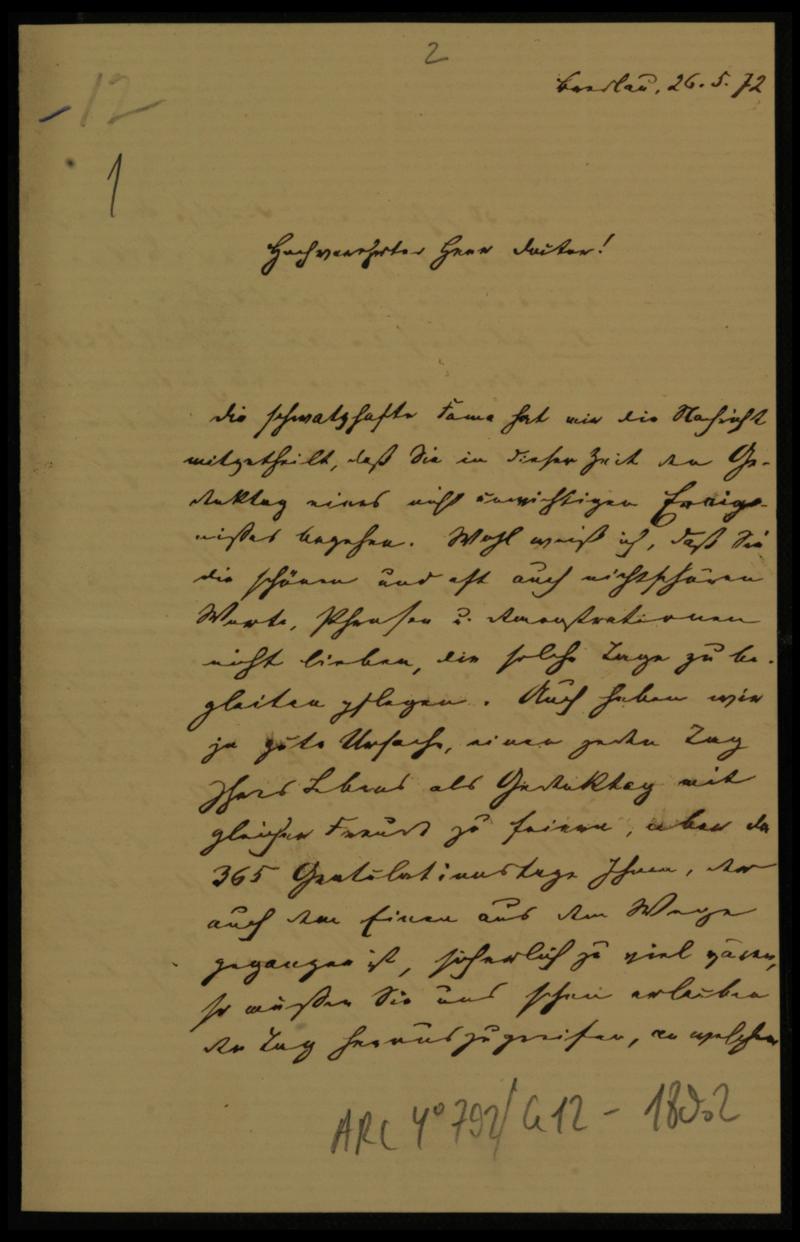 2
12
Breslau, 26. 5. 72
1
Hochverehrter Herr Doctor!
Die schwatzhafte Fama hat mir die Nachricht
mitgetheilt, daß Sie in dieser Zeit den Ge-
denktag eines nicht unwichtigen Ereig-
nißes begehen. Wohl weiß ich, daß Sie
die schönen und oft auch nichtschönen
Worte, Phrasen u. Demonstrationen
nicht lieben, die solche Tage zu be-
gleiten pflegen. Auch haben wir
ja gute Ursache, einen jeden Tag
Ihres Lebens als Gedenktag mit
gleicher Freude zu feiern, aber da
365 Gratulationstage Ihnen, der
auch dem Einen aus dem Wege
gegangen ist, sicherlich zu viel wären,
so müßen Sie uns schon erlauben
den Tag herauszugreifen, an welchem
ARC 4° 792/G12 -